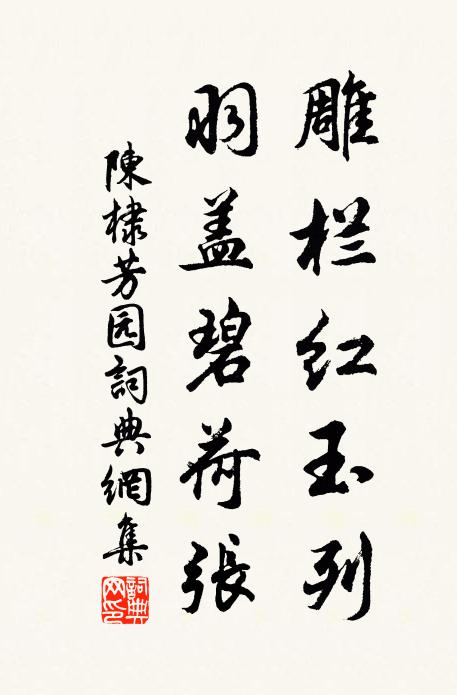 雕栏红玉列
羽盖碧荷张
陳棣芳园詞典網集
詞典网印